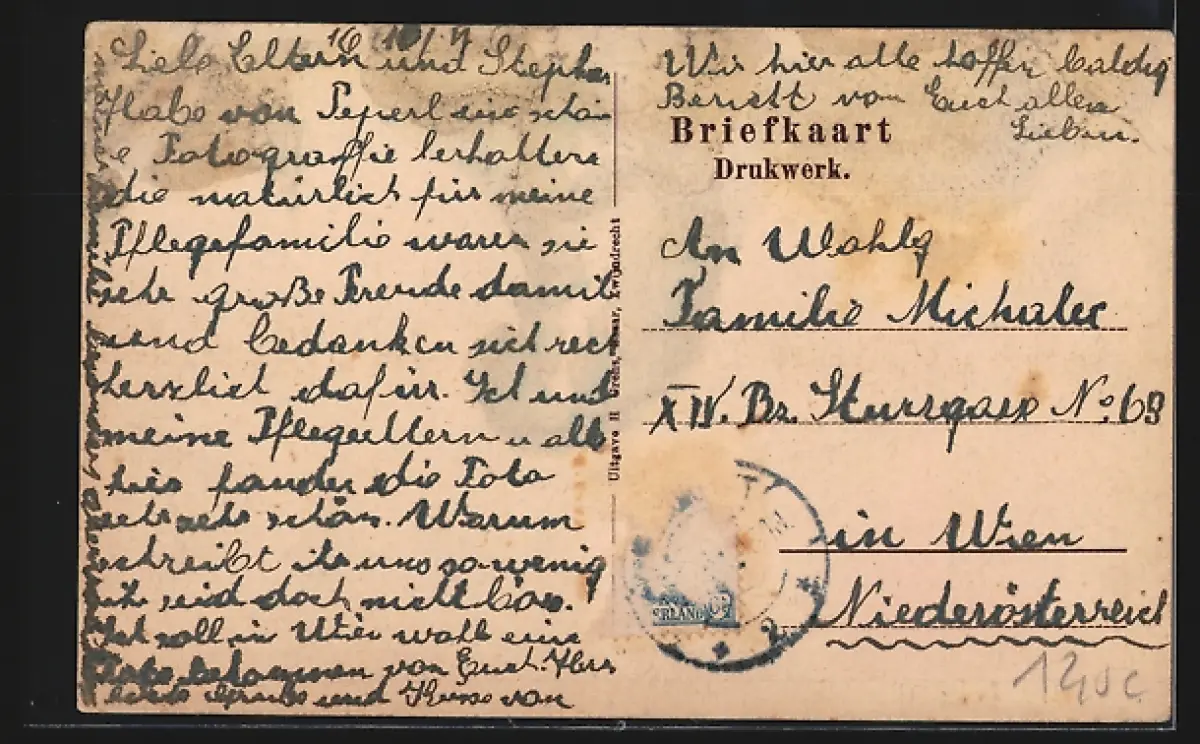 Liebe Eltern und Stephan
Habe von Peperl eine schön
e Fotograffie erhalten
die natürlich für meine
Pflegefamilie waren sie
sehr große Freude damit
und bedanken sich rech
herzlich dafür. Ich und
meine Pflegeeltern u alle
hier fanden die Foto
sehr schön. Warum
schreibt ihr uns so wenig
ihr seid doch nicht bös.
Ich soll in Wien wohl eine
Foto bekommen von Euch. Herz
Grüße und Küsse von
Wir hier alle hoffen baldig
Bericht von Euch allen
Lieben.
Briefkaart
Drukwerk.
An Wohlg
Familie Michalec
XIV. Bz. No 68
in Wien
Niederösterreich
Zwijndrecht
12,00 €